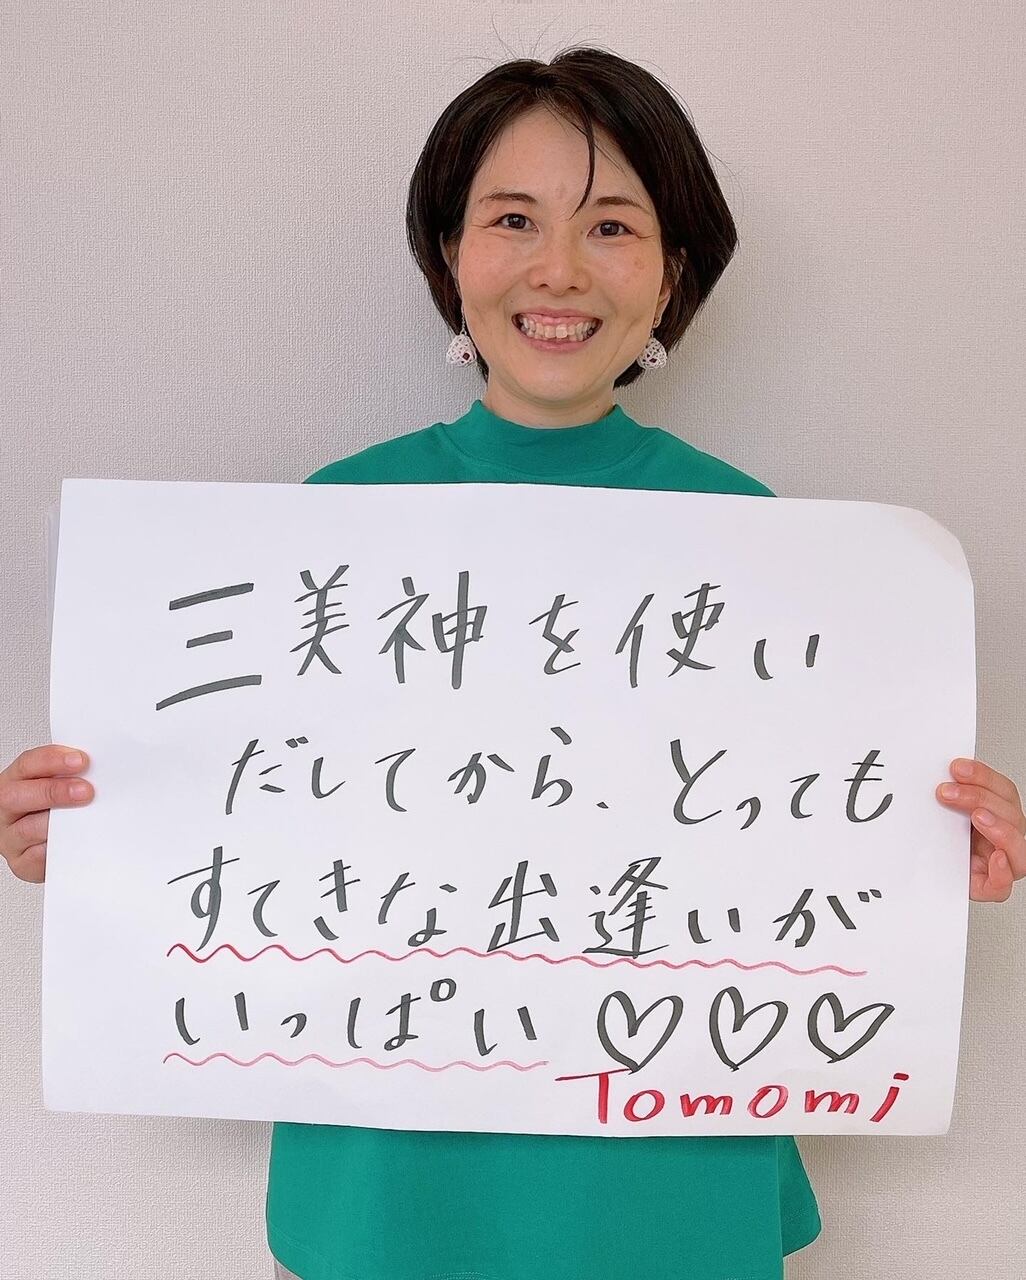 三美神を使い
だしてから、とっても
すてきな出逢いが
いっぱい♡♡♡
Tomomi